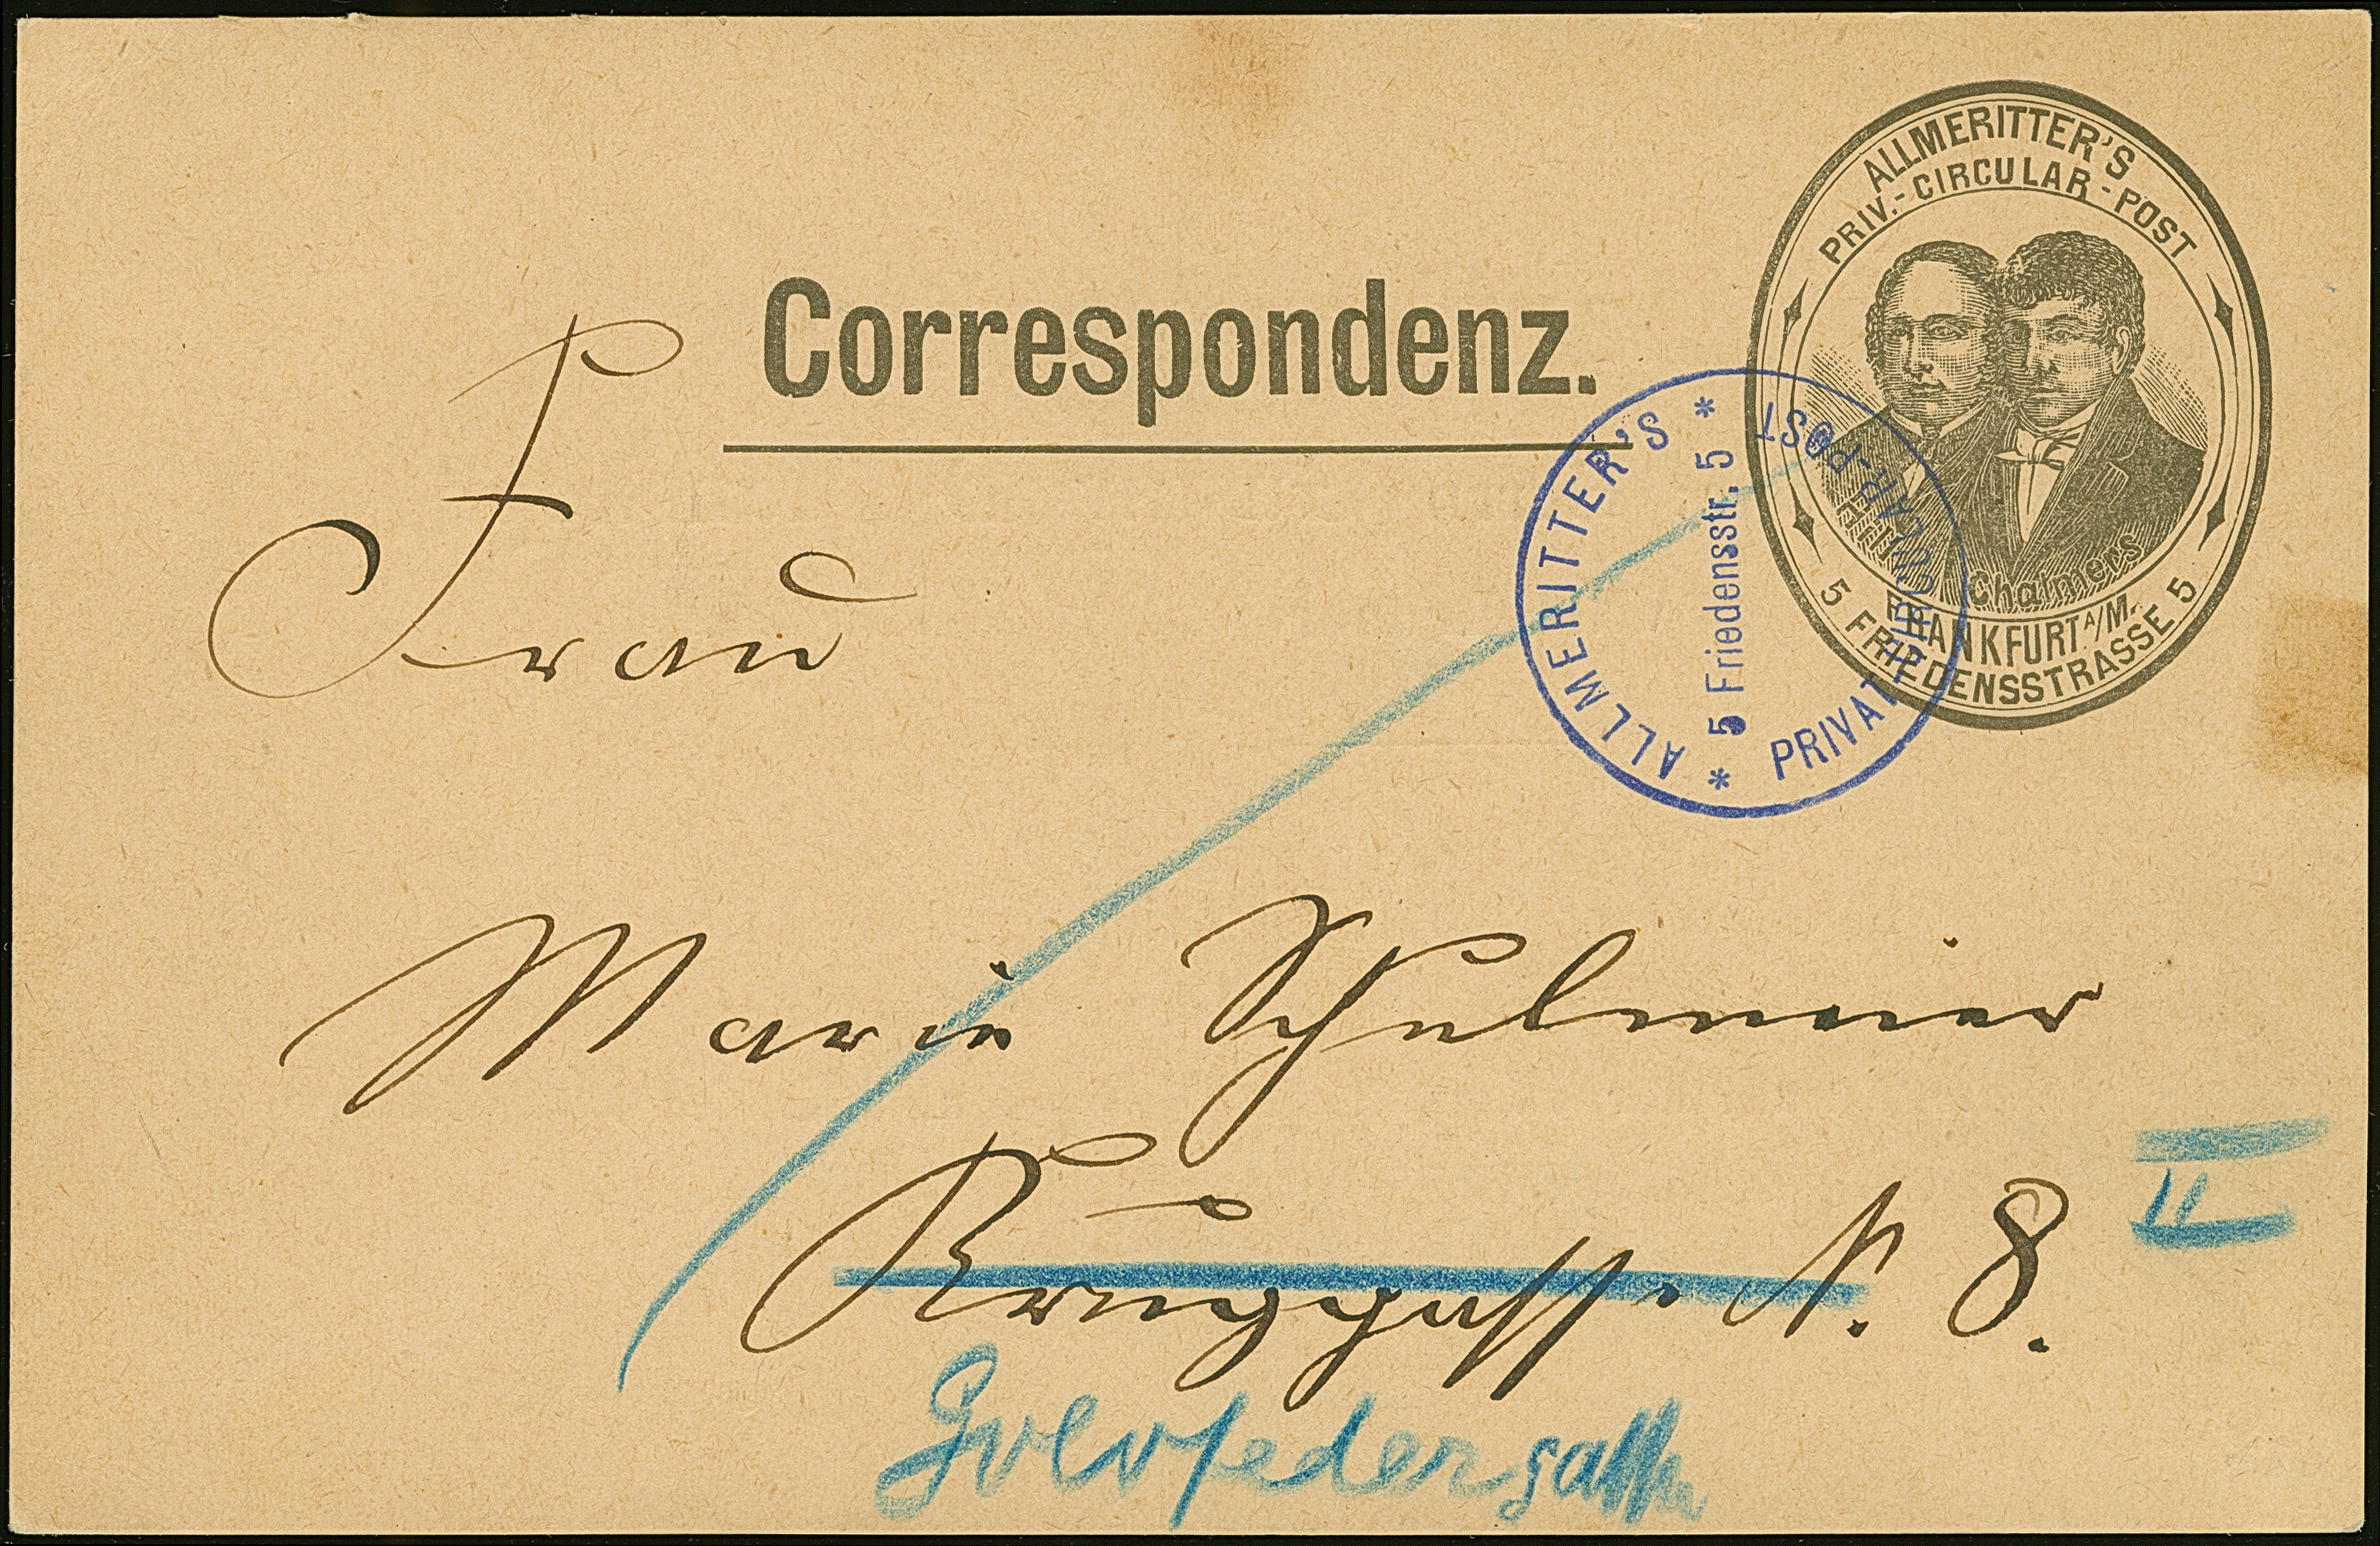 ALLMERITTER'S
PRIV.-CIRCULAR-POST
Hill
Chalmers
FRANKFURT A/M.
5 FRIEDENSSTRASSE 5
Correspondenz.
* ALLMERITTER'S *
5 Friedensstr. 5
PRIVAT-CIRCULAR-POST
Frau
Marie Schulmeier
Kruggasse N. 8. II
Goldfedergasse